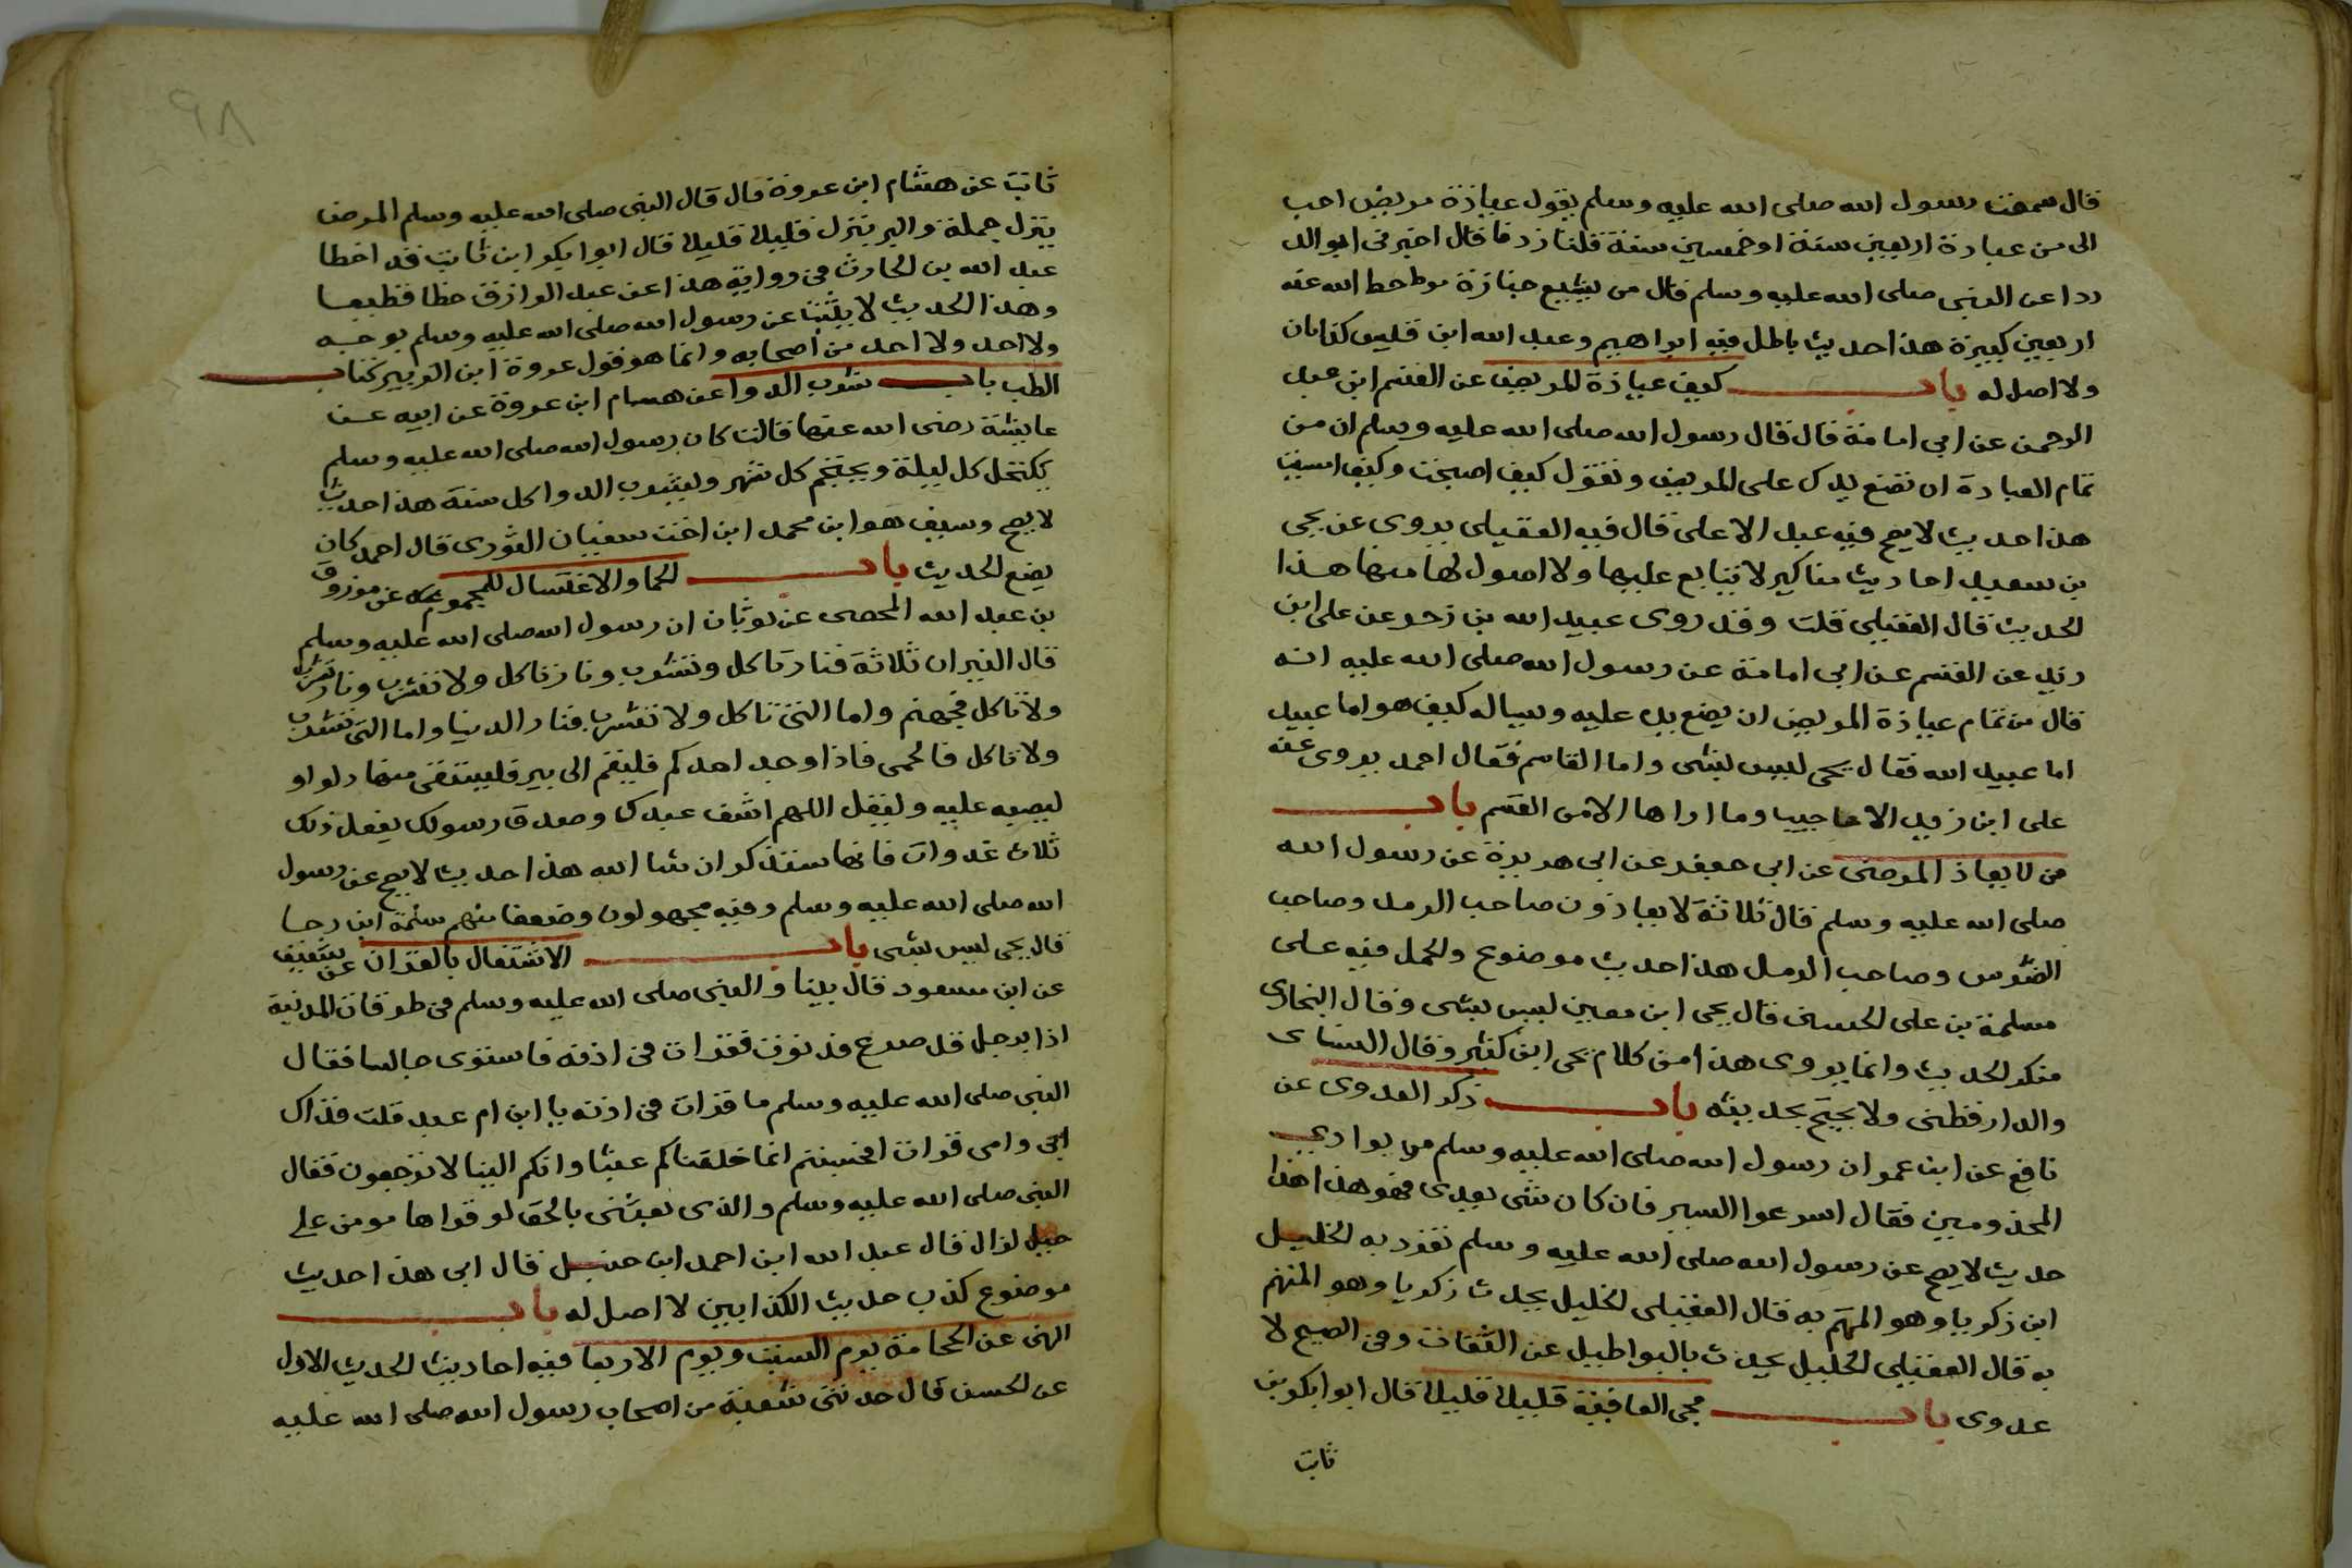 قال سمعت رسول الله صلى الله عليه وسلم يقول عيادة مريض احب
الى من عبادة اربعين سنة او خمسين سنة قلنا زدنا قال اخبرنى ابو الد
ردا عن النبى صلى الله عليه وسلم قال من يشيع جنازة مو طحط الله عنه
اربعين كبيرة هذا حديث باطل فيه ابراهيم وعبد الله ابن قليس كذابان
ولا اصل له باب كيف عيادة المريض عن القسم ابن عبد
الرحمن عن ابى امامة قال قال رسول الله صلى الله عليه وسلم ان من
تمام العيادة ان تضع يدك على المريض وتقول كيف اصبحت وكيف امسيت
هذا حديث لا يصح فيه عبد الاعلى قال فيه العقيلى يروى عن يحيى
بن سعيد احاديث مناكير لا يتابع عليها ولا اصول لها منها هذا
الحديث قال العقيلى قلت وقد روى عبيد الله بن زحر عن على ابن
زيد عن القسم عن ابى امامة عن رسول الله صلى الله عليه انه
قال من تمام عيادة المريض ان يضع يده عليه ويساله كيف هو اما عبيد
اما عبيد الله فقال يحيى ليس بشى واما القاسم فقال احمد يروى عنه
على ابن زيد الاعاجيب وما اراها الا من القسم باب
من لا يعاد المرضى عن ابى جعفر عن ابى هريرة عن رسول الله
صلى الله عليه وسلم قال ثلاثة لا يعادون صاحب الرمد وصاحب
الضرس وصاحب الدمل هذا حديث موضوع والحمل فيه على
مسلمة بن على الحسنى قال يحيى ابن معين ليس بشى وقال البخارى
منكر الحديث وانما يروى هذا من كلام يحى ابن كثير وقال النساى
والدارقطنى ولا يحتج بحديثه باب ذكر العدوى عن
نافع عن ابن عمر ان رسول الله صلى الله عليه وسلم مر بوادى
المجذومين فقال اسرعوا السير فان كان شى يعدى فهو هذا هذا
حديث لا يصح عن رسول الله صلى الله عليه وسلم تفرد به الخليل
ابن زكريا وهو المتهم به قال العقيلى الخليل يحدث زكريا وهو المتهم
به قال العقيلى الخليل يحدث بالبواطيل عن الثقات وفى الصحيح لا
عدوى باب مجى العافية قليلا قليلا قال ابو ابكر بن
ثابت
٩٨
ثابت عن هشام ابن عروة قال قال النبى صلى الله عليه وسلم المرض
ينزل جملة والبر ينزل قليلا قليلا قال ابو ابكر ابن ثابت قد اخطا
عبد الله بن الحارث فى رواية هذا عن عبد الرازق خطا فظيعا
وهذا الحديث لا يثبت عن رسول الله صلى الله عليه وسلم بوجه
ولا احد ولا احد من أصحابه وانما هو قول عروة ابن الزبير كتاب
الطب باب شرب الدوا عن هسام ابن عروة عن ابيه عن
عايشة رضى الله عنها قالت كان رسول الله صلى الله عليه وسلم
يكتحل كل ليلة ويحتجم كل شهر ويشرب الدوا كل سنة هذا حديث
لا يصح وسيف هو ابن محمد ابن اخت سفيان الثورى قال احمد كان
يضع الحديث باب الحما والاغتسال للمحموم عن مرزوق
بن عبد الله الحمصى عن ثوبان ان رسول الله صلى الله عليه وسلم
قال النيران ثلاثة فنار تاكل وتشرب ونار تاكل ولا تشرب ونار تشرب
ولا تاكل فجهنم واما التى تاكل ولا تشرب فنار الدنيا واما التى تشرب
ولا تاكل فالحمى فاذا وجد احدكم فليقم الى بير فليستقى منها دلوا و
ليصبه عليه وليقل اللهم اشف عبدك وصدق رسولك يفعل ذلك
ثلاث غدوات فانها ستذكر ان شا الله هذا حديث لا يصح عن رسول
الله صلى الله عليه وسلم وفيه مجهولون وضعفا منهم سلمة ابن رجا
قال يحيى ليس بشى باب الاشتغال بالقران عن شقيق
عن ابن مسعود قال بينا والنبى صلى الله عليه وسلم فى طرقات المدينة
اذا برجل قد صرع فدنوت فقرات فى اذنه فاستوى جالسا فقال
النبى صلى الله عليه وسلم ما قرات فى اذنه يا ابن ام عبد قلت فداك
ابى وامى قرات افحسبتم انما خلقناكم عبثا وانكم الينا لا ترجعون فقال
النبى صلى الله عليه وسلم والذى بعثنى بالحق لو قراها مومن على
جبل لزال قال عبد الله ابن احمد ابن حنبل قال ابى هذا حديث
موضوع كذب حديث الكذابين لا اصل له باب
النهى عن الحجامة يوم السبت ويوم الاربعا فيه احاديث الحديث الاول
عن الحسن قال حدثنى سبعة من اصحاب رسول الله صلى الله عليه